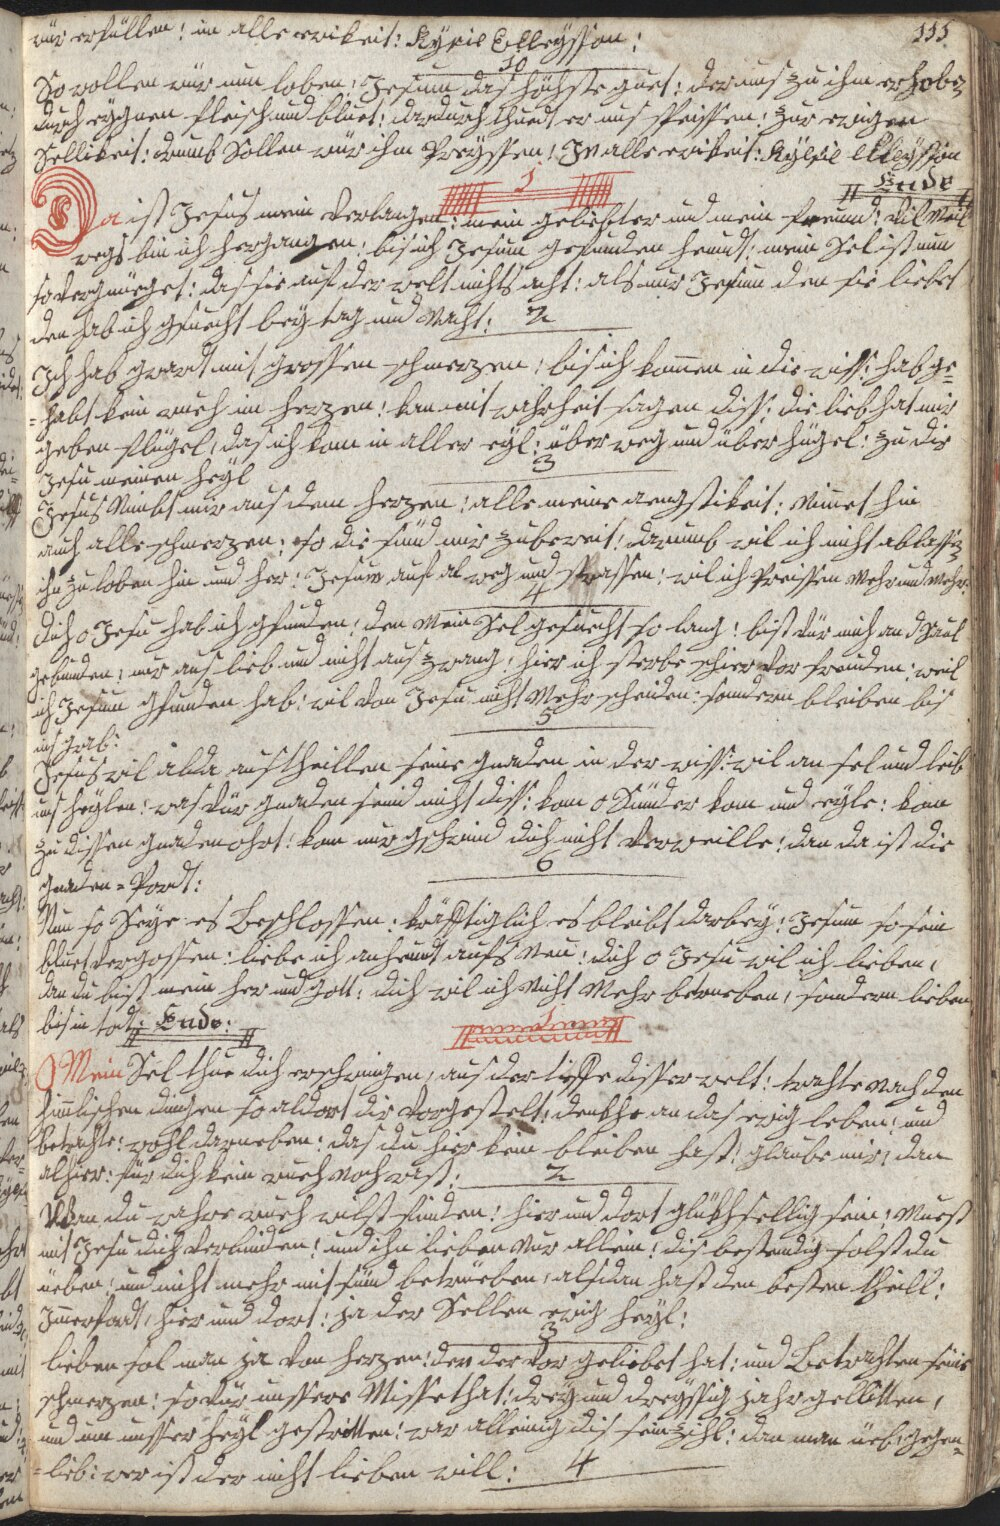 115
wür erfüllen! in alle ewikeit: Kyrie Elleÿsson:
10
So wollen wür nun loben! Jesum das höchste guet: der uns zu ihm erhoben
durch eÿgnen fleisch und bluet: dardurch thuet er uns speissen! zur ewigen
Sellikeit: drumb Sollen wür ihm Preÿssen! In alle ewikeit: Kÿrie elleÿsson
Ende
1
Da ist Jesus mein verlangen! mein geliebter und mein freund! vil Meil
wegs bin ich hergangen! bis ich Jesum gefunden heundt: mein Sel ist nun
so vergnüeget: das sie auf der welt nichts acht: als nur Jesum den sie liebet
den hab ich gsuecht beÿ tag und Nacht: 2
Ich hab grandt mit grossen schmerzen! bis ich komen in die wiss: hab ge=
=habt kein ruoh im herzen! kan mit wahrheit sagen diss: die lieb hat mir
geben flügel! das ich kom in aller eÿl: über weg und über hügel: zu dir
Jesu meinen heÿl
3
Jesus Nimbt mir aus dem herzen! alle meine aengstikeit: Nimet hin
auch alle schmerzen: so die sünd mir zubereit! darumb wil ich nicht ablassen
ihn zu loben hin und her! Jesum auf al weg und strassen: wil ich Preissen Mehr und Mehr:
4
Dich o Jesu hab ich gfunden! den Mein Sel gesuecht so lang! bist für mich an d Saul
gebunden! nur aus lieb und nicht aus zwang! hier ich sterbe schier vor freuden: weil
ich Jesum gfunden hab: wil von Jesu nicht Mehr scheiden: sondern bleiben bis
ins grab:
5
Jesus wil alda austheillen seine gnaden in der wiss: wil an sel und leib
uns heÿlen! was für gnaden seind nicht diss: kom o Sünder kom und eÿle: kom
zu dissen gnaden ohrt! kom nur gschwind dich nicht verweille! dan da ist die
gnaden=Pordt:
6
Nun so Seÿe es beschlossen: kräfftiglich es bleibt darbeÿ! Jesum so sein
bluet vergossen: liebe ich anheundt aufs Neu: dich o Jesu wil ich lieben!
dan du bist mein her und Gott: dich wil ich Nicht Mehr betrüeben! sondern lieben
bis in todt: Ende:
1
O Mein Sel thue dich erschwingen! aus der tieffe disser welt: trachte Nach den
himlischen dingen so aldort dir vorgestelt! denkhe an das ewig leben! und
betrachte: wohl darneben: das du hier kein bleiben hast: glaube mir! dan
alhier: für dich kein rueh noch rast: 2
Wan du wahre rueh wilst finden! hier und dort glükhsellig sein! Muest
mit Jesu dich verbinden! und ihn lieben Nur allein! dis bestendig solst du
üeben! und nicht mehr mit sünd betrüeben! als dan hast den besten theill:
Imerfordt! hier und dort! ja der Sellen ewig heÿl:
3
lieben sol man ja von herzen! den der vor geliebet hat: und betrachten seine
schmerzen! so für unssere Missethat! dreÿ und dreÿssig jahr gelitten!
und um unsser heÿl gestritten! war alleinig dis sein zihl: dan man üeb gegen=
=lieb: wer ist der nicht lieben will: 4